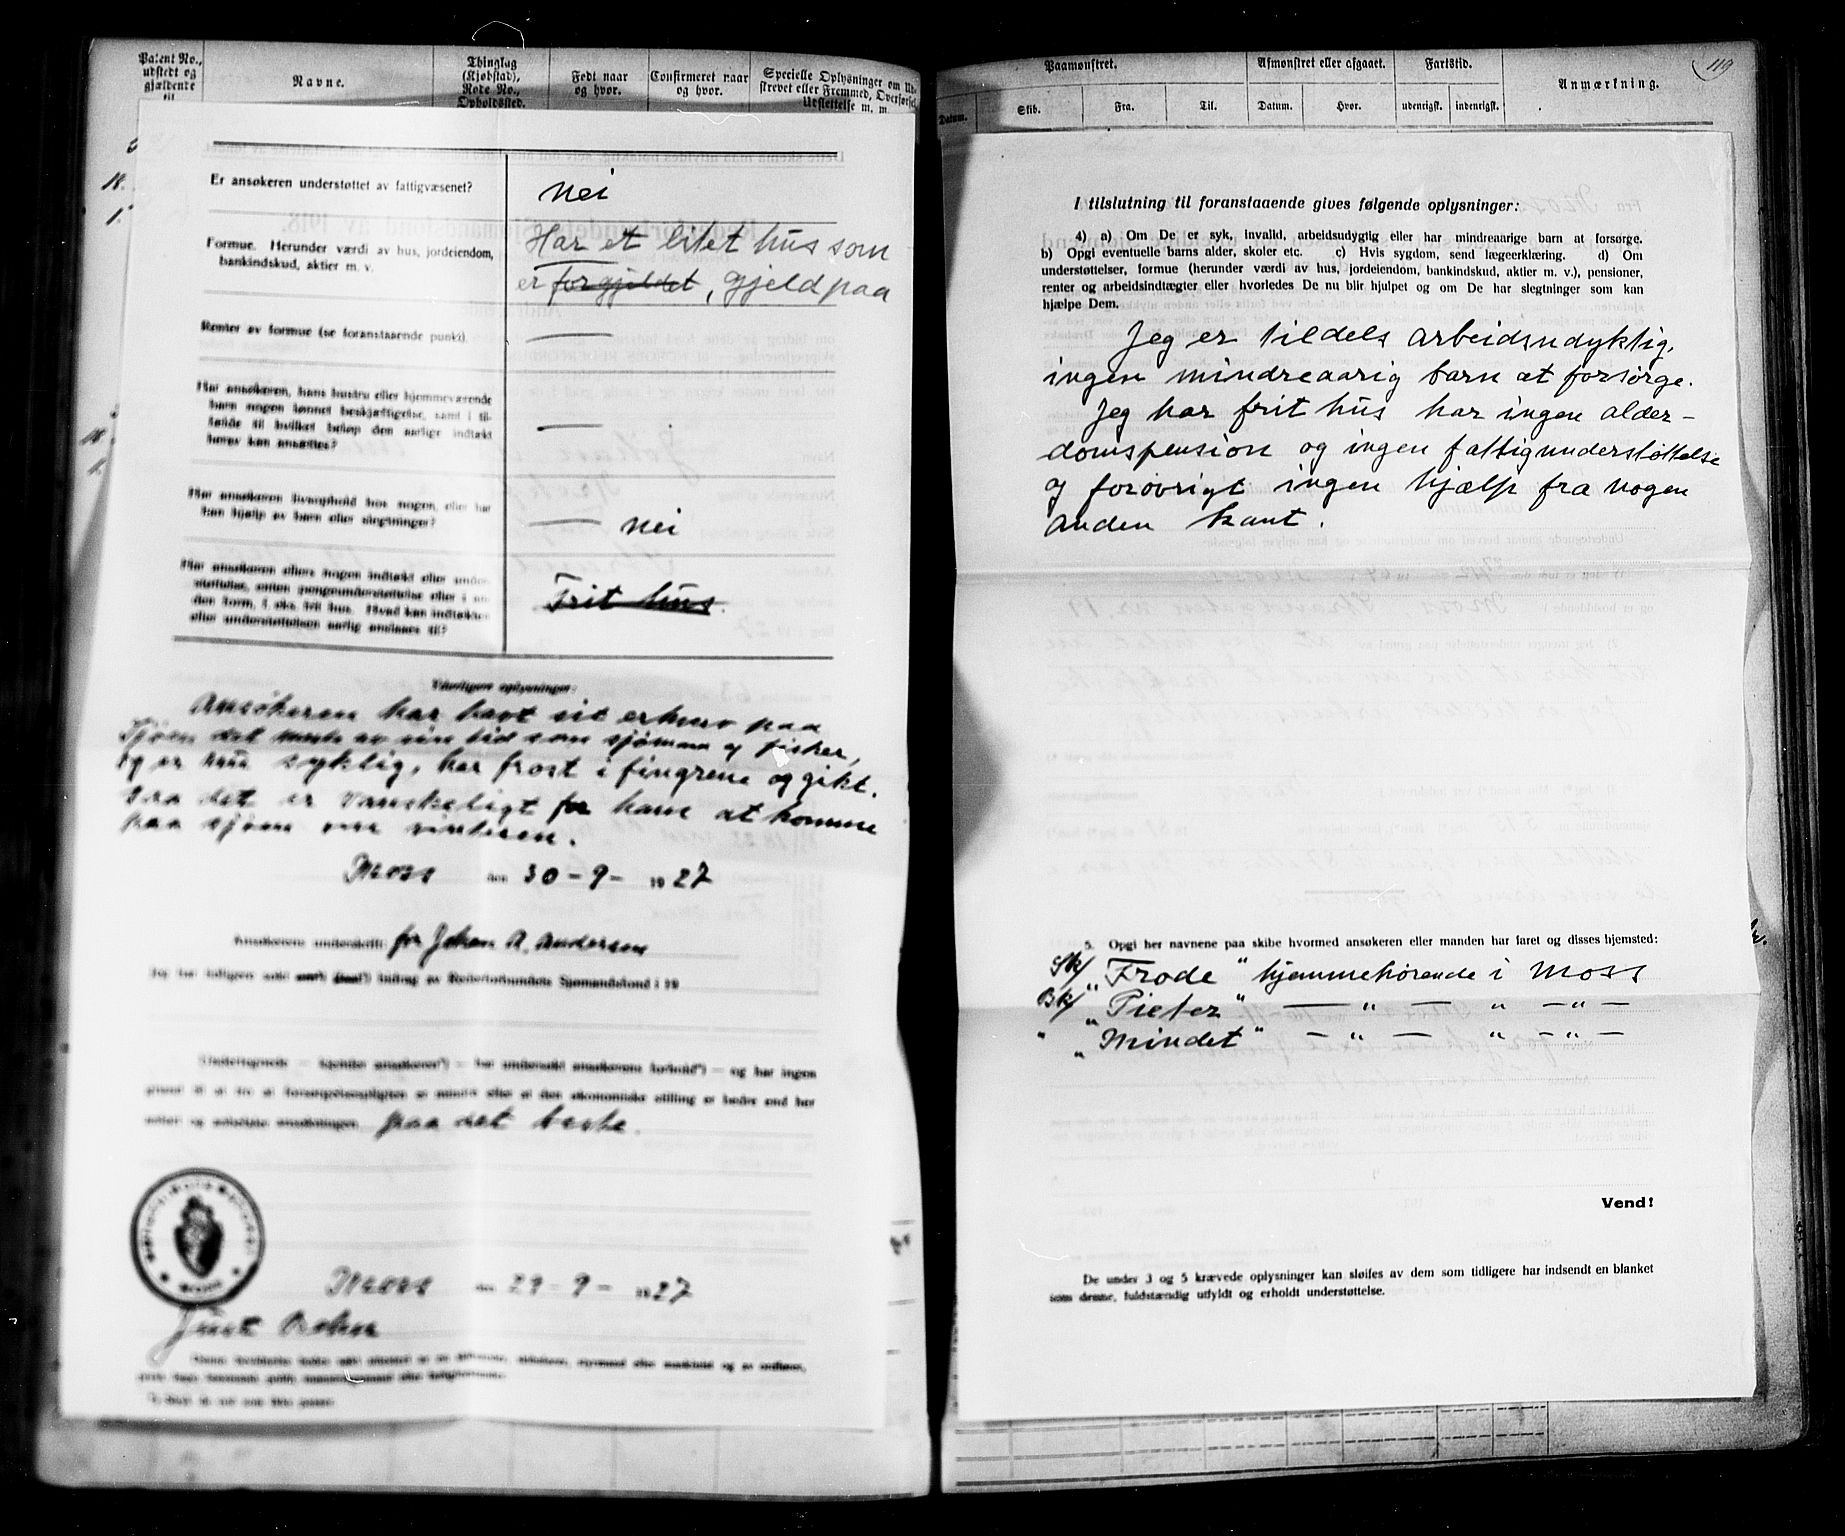 Patent No.,
udstedt og
gjældende
til
Navne.
Thinglag
(Kjøbstad),
Rode No.,
Opholdssted.
Født naar
og hvor.
Confirmeret naar
og hvor.
Specielle Oplysninger om Ud-
skrevet eller Fremmed, Overførsel,
Udslettelse m. m.
Er ansøkeren understøttet av fattigvæsenet?
Nei
Formue. Herunder værdi av hus, jordeiendom,
bankindskud, aktier m. v.
Har et litet hus som
er forgjeldet, gjeld paa
Renter av formue (se foranstaaende punkt).
—
Har ansøkeren, hans hustru eller hjemmeværende
barn nogen lønnet beskjæftigelse, samt i til-
fælde til hvilket beløp den aarlige indtækt
herav kan ansættes?
—
Har ansøkeren livsophold hos nogen, eller har
han hjælp av barn eller slegtninger?
— nei
Har ansøkeren ellers nogen indtækt eller under-
støttelse, enten pengeunderstøttelse eller i an-
den form, f. eks. frit hus. Hvad kan indtækten
eller understøttelsen aarlig anslaaes til?
Frit hus.
Yderligere oplysninger:
Ansøkeren har havt sit erhverv paa
Sjøen det meste av sin tid som sjømann og fisker,
og er nu syklig, har frost i fingrene og gikt.
saa det er vanskeligt for ham at komme
paa sjøen om vinteren.
Moss den 30-9- 1927
Ansøkerens underskrift: for Johan A. Andersen
Jeg har tidligere søkt om bidrag av Rederforbundets Sjømandsfond i 19
Undertegnede — kjender ansøkeren*) — har undersøkt ansøkerens forhold*) — og har ingen
grund til at tro at forsørgelsespligten er mindre eller at den økonomiske stilling er bedre end her
anført og anbefaler ansøkningen. paa det beste.
Moss den 29-9- 1927
119
Paamønstret.
Afmønstret eller afgaaet.
Fartstid.
Anmærkning.
Datum.
Skib.
Fra.
Til.
Datum.
Hvor.
udenrigsk.
indenrigsk.
I tilslutning til foranstaaende gives følgende oplysninger:
4) a) Om De er syk, invalid, arbeidsudygtig eller har mindreaarige barn at forsørge.
b) Opgi eventuelle barns alder, skoler etc. c) Hvis sygdom, send lægeerklæring. d) Om
understøttelser, formue (herunder værdi av hus, jordeiendom, bankindskud, aktier m. v.), pensioner,
renter og arbeidsindtægter eller hvorledes De nu blir hjulpet og om De har slegtninger som kan
hjælpe Dem.
Jeg er tildels arbeidsudyktig,
ingen mindreaarig barn at forsørge.
Jeg har frit hus har ingen alder-
domspension og ingen fattigunderstøttelse
og forøvrigt ingen hjælp fra nogen
anden kant.
5. Opgi her navnene paa skibe hvormed ansøkeren eller manden har faret og disses hjemsted:
Sk/ „Frode" hjemmehørende i Moss
Bk/ „Pieter" — " — " — " —
" „Mindet" — " — " — " —
Vend!
De under 3 og 5 krævede oplysninger kan sløifes av dem som tidligere har indsendt en blanket
som denne, fuldstændig utfyldt og erholdt understøttelse.